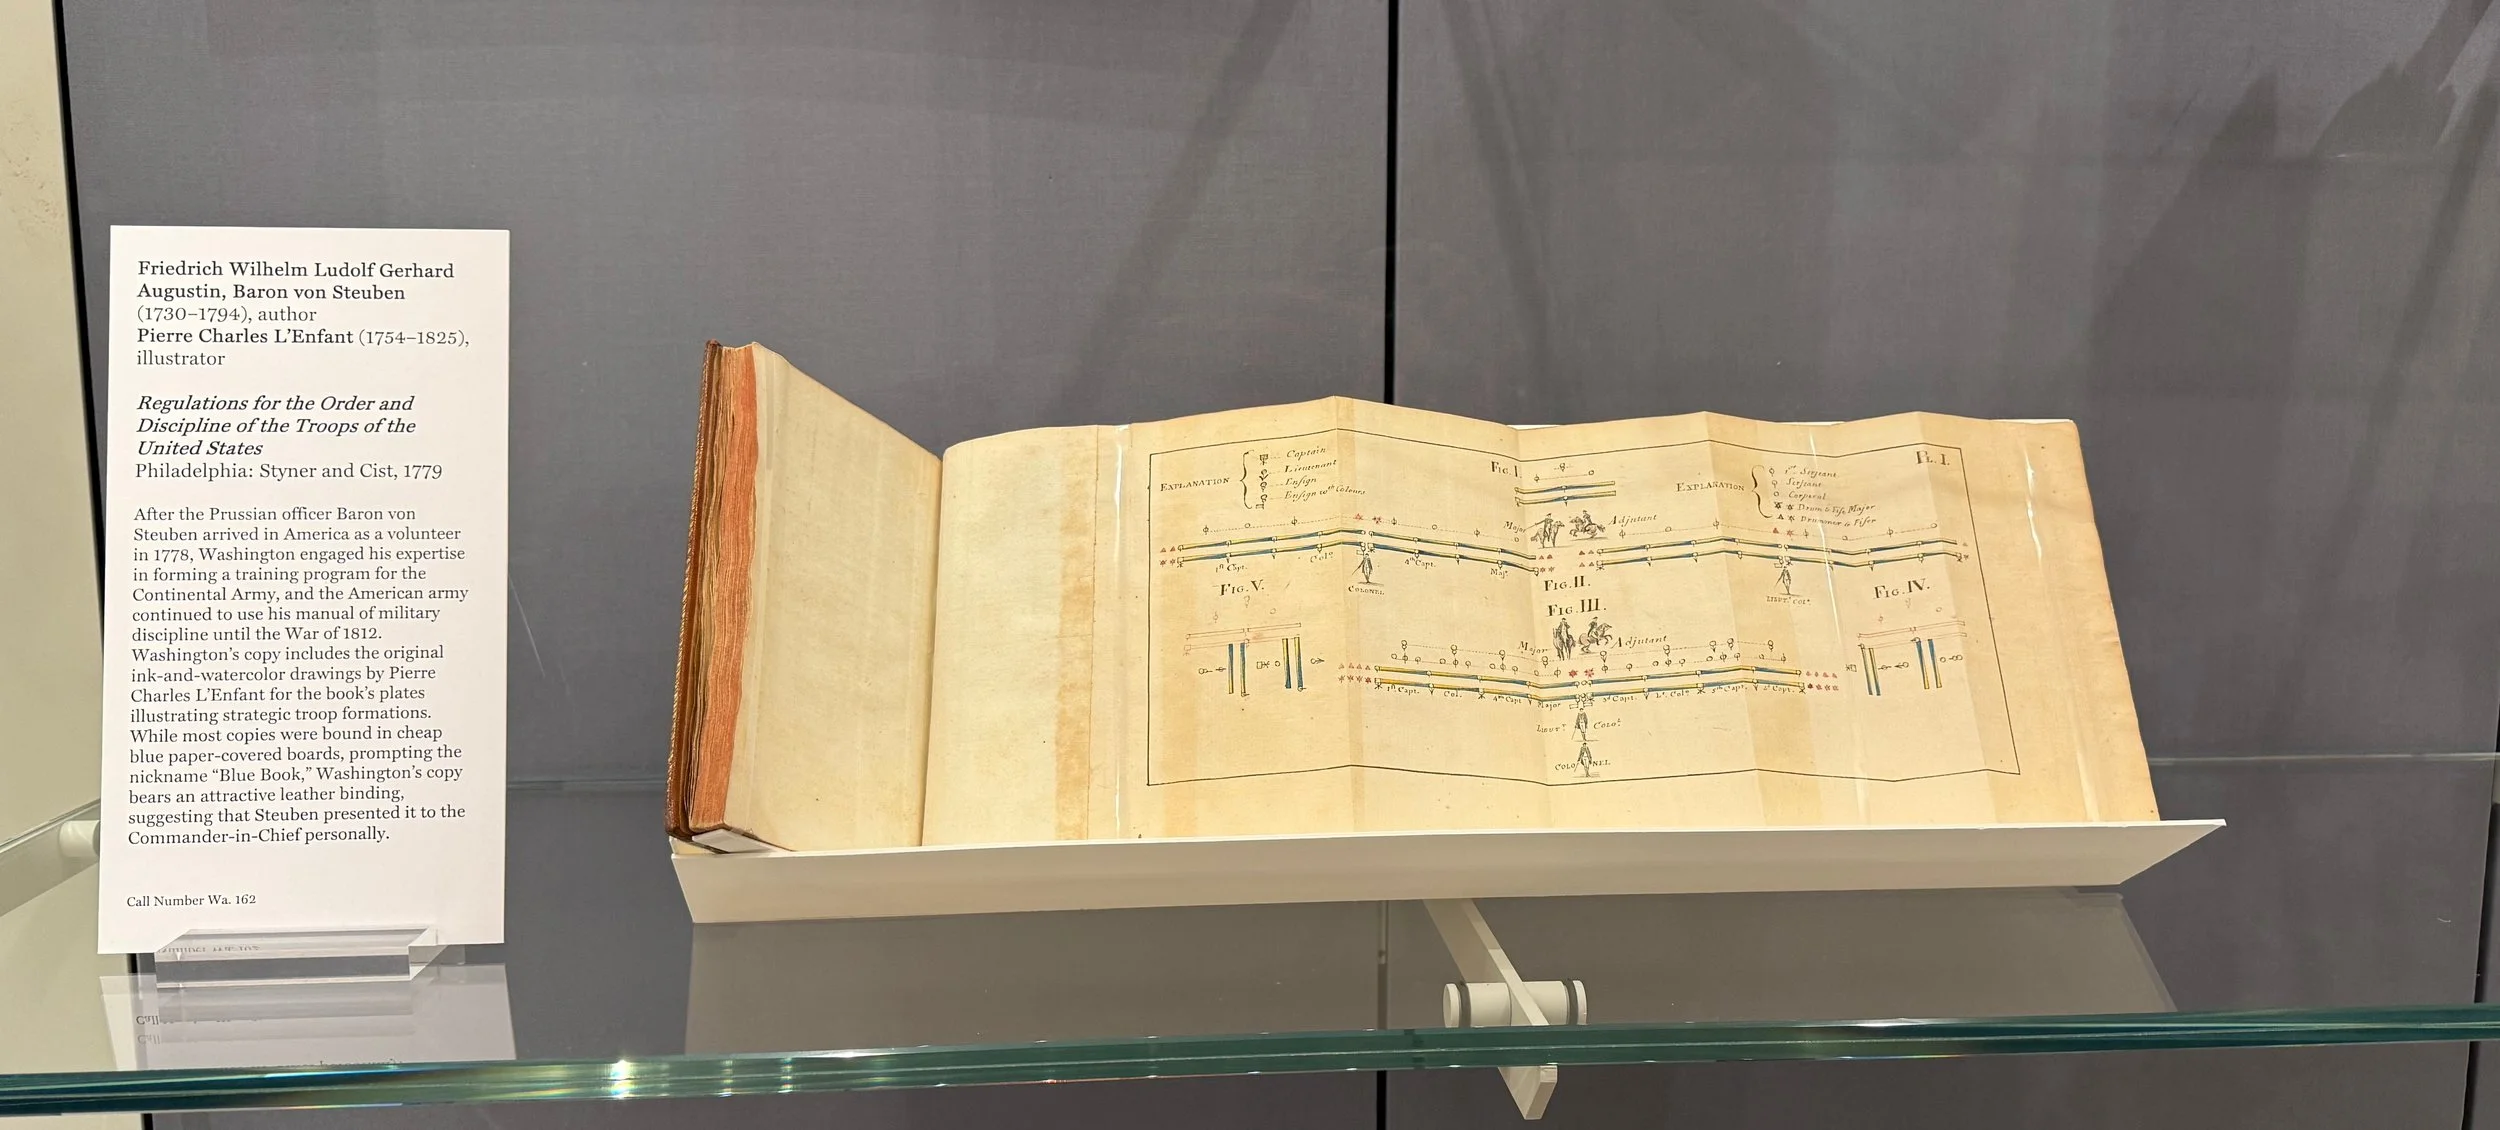 Friedrich Wilhelm Ludolf Gerhard
Augustin, Baron von Steuben
(1730–1794), author
Pierre Charles L'Enfant (1754–1825),
illustrator
Regulations for the Order and
Discipline of the Troops of the
United States
Philadelphia: Styner and Cist, 1779
After the Prussian officer Baron von
Steuben arrived in America as a volunteer
in 1778, Washington engaged his expertise
in forming a training program for the
Continental Army, and the American army
continued to use his manual of military
discipline until the War of 1812.
Washington's copy includes the original
ink-and-watercolor drawings by Pierre
Charles L'Enfant for the book's plates
illustrating strategic troop formations.
While most copies were bound in cheap
blue paper-covered boards, prompting the
nickname “Blue Book,” Washington's copy
bears an attractive leather binding,
suggesting that Steuben presented it to the
Commander-in-Chief personally.
Call Number Wa. 162
Pl. I.
Explanation
Captain
Lieutenant
Ensign
Ensign wth Colours
Fig. I.
Explanation
1st Serjeant
Serjeant
Corporal
Drum & Fife Major
Drummer & Fifer
Major
Adjutant
1st Capt.
Colo
4th Capt.
Maj.
Colonel
Lieut. Colo.
Fig. II.
Fig. V.
Fig. III.
Fig. IV.
Major
Adjutant
1st Capt.
Col.
4th Capt.
Major
3d Capt.
Lt. Colo
5th Capt.
2d Capt.
Lieut. Colol.
Colonel